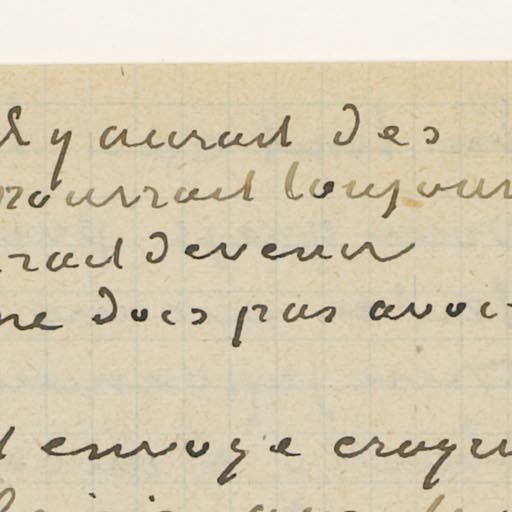 il y aurait des
pourrait toujour
rait devenir
ne dois pas avoi
t envoye croqu